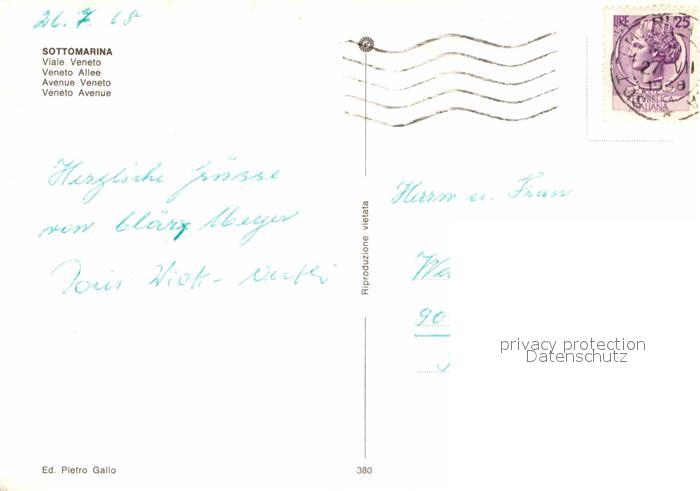 26.7.68
SOTTOMARINA
Viale Veneto
Veneto Allee
Avenue Veneto
Veneto Avenue
LIRE 25
27 VII
REPUBBLICA
ITALIANA
Herzliche Grüsse
von Meyer
Doris
Riproduzione vietata
Herrn u. Frau
90
privacy protection
Datenschutz
Ed. Pietro Gallo
380